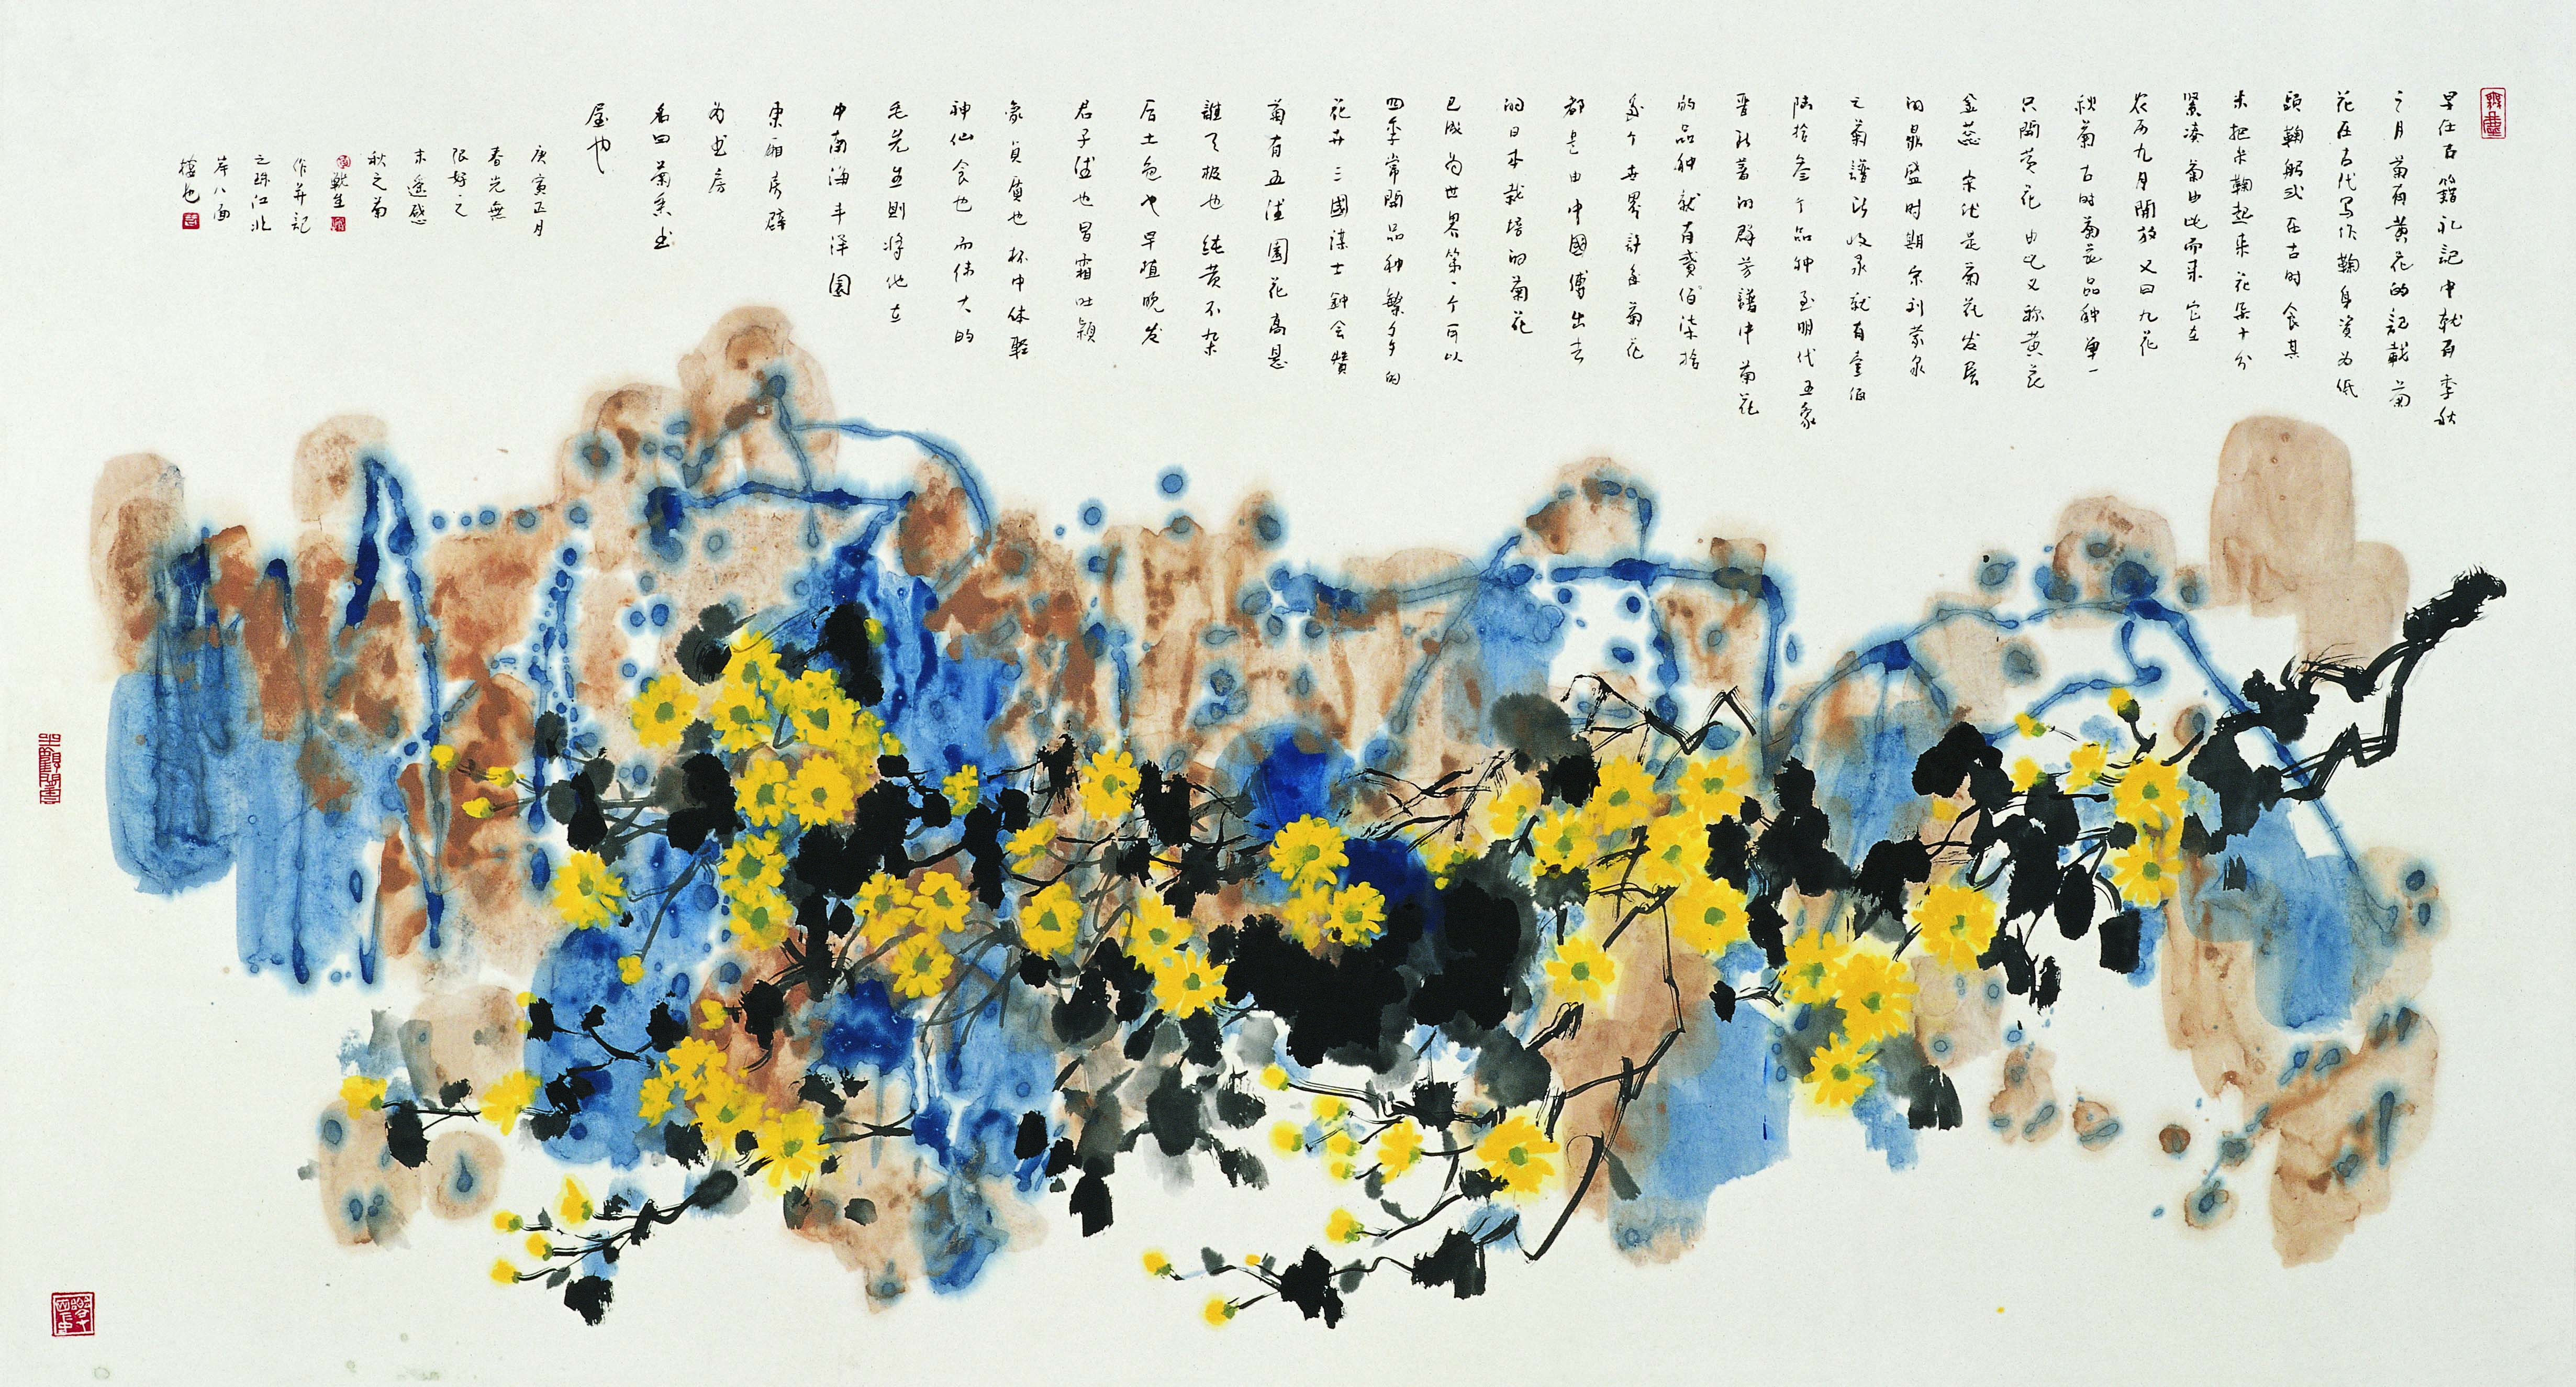 早在古籍礼記中就有季秋
之月菊有黃花的記載菊
花在古代写作鞠身資为低
頭鞠躬弍在古时食其
米把米鞠起来花朵十分
緊凑菊由此而来它在
农历九月開放又曰九花
秋菊古时菊花品种单一
只開黄花由此又称黄花
金蕊宋代是菊花发展
的最盛时期宋刘蒙泉
之菊譜所收录就有壹佰
陆拾叁个品种至明代王象
晋所著的群芳譜中菊花
的品种就有贰佰柒拾
多个世界許多菊花
都是由中國傳出去
的日本栽培的菊花
已成为世界第一个可以
四季常開品种繁多的
花卉三國谋士鈡会赞
菊有五德園花高悬
誰天极也纯黄不杂
后土色也早植晚发
君子德也冒霜吐潁
象貞質也杯中体輕
神仙食也而伟大的
毛先生則将他在
中南海丰泽園
東廂房辟
为书房
名曰菊香书
屋也
庚寅正月
春光無
限好之
末遥感
秋之菊
作并記
之珠江北
岸八面
楼也